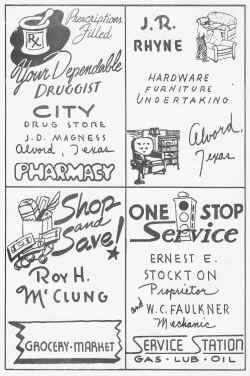 Prescriptions
Filled
Rx
Your Dependable
DRUGGIST
CITY
DRUG STORE
J.D. MAGNESS
Alvord, Texas
PHARMACY
J.R.
RHYNE
HARDWARE
FURNITURE
UNDERTAKING
Alvord
Texas
Shop
and
Save!
Roy H.
McCLUNG
GROCERY-MARKET
ONE STOP
Service
ERNEST E.
STOCKTON
Proprietor
and W.C. FAULKNER
Mechanic
SERVICE STATION
GAS - LUB - OIL